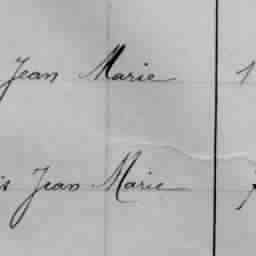 Jean Marie 1
is Jean Marie